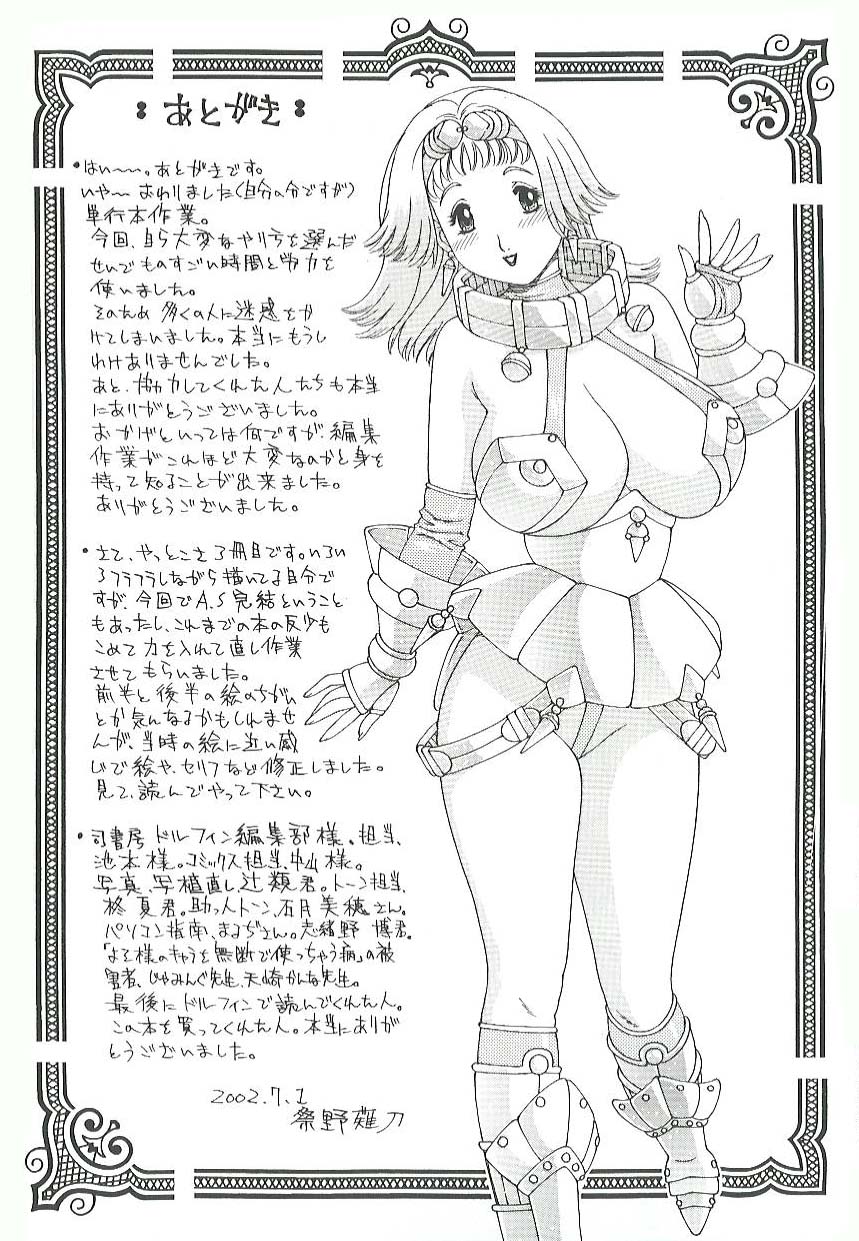 あとがき
・はい〜〜。あとがきです。
いや〜 おわりました(自分の分ですが)
単行本作業。
今回、自ら大変なやり方を選んだ
せいでものすごい時間と労力を
使いました。
そのため 多くの人に迷惑をか
けてしまいました。本当にもうし
わけありませんでした。
あと、協力してくれた人たちも本当
にありがとうございました。
おかげといっては何ですが、編集
作業がこれほど大変なのかと身を
持って知ることが出来ました。
ありがとうございました。
・さて、やっとこさ3冊目です。いろい
ろフラフラしながら描いてる自分で
すが、今回でA.S完結ということ
もあったし、これまでの本の反省も
こめて力を入れて直し作業
させてもらいました。
前半と後半の絵のちがい
とか気んなるかもしれませ
んが、当時の絵に近い感
じで絵や、セリフなど修正しました。
見て、読んでやって下さい。
・司書房 ドルフィン編集部様。担当、
池本様。コミックス担当、中山様。
写真、写植直し、辻類君。トーン担当、
柊 夏君。助っ人トーン、石月美穂さん。
パソコン指南、まるぢさん。志緒野 博君。
「よそ様のキャラを無断で使っちゃう病」の被
害者、じゃみんぐ先生、天崎かんな先生。
最後にドルフィンで読んでくれた人。
この本を買ってくれた人。本当にありが
とうございました。
2002.7.1
祭野薙刀